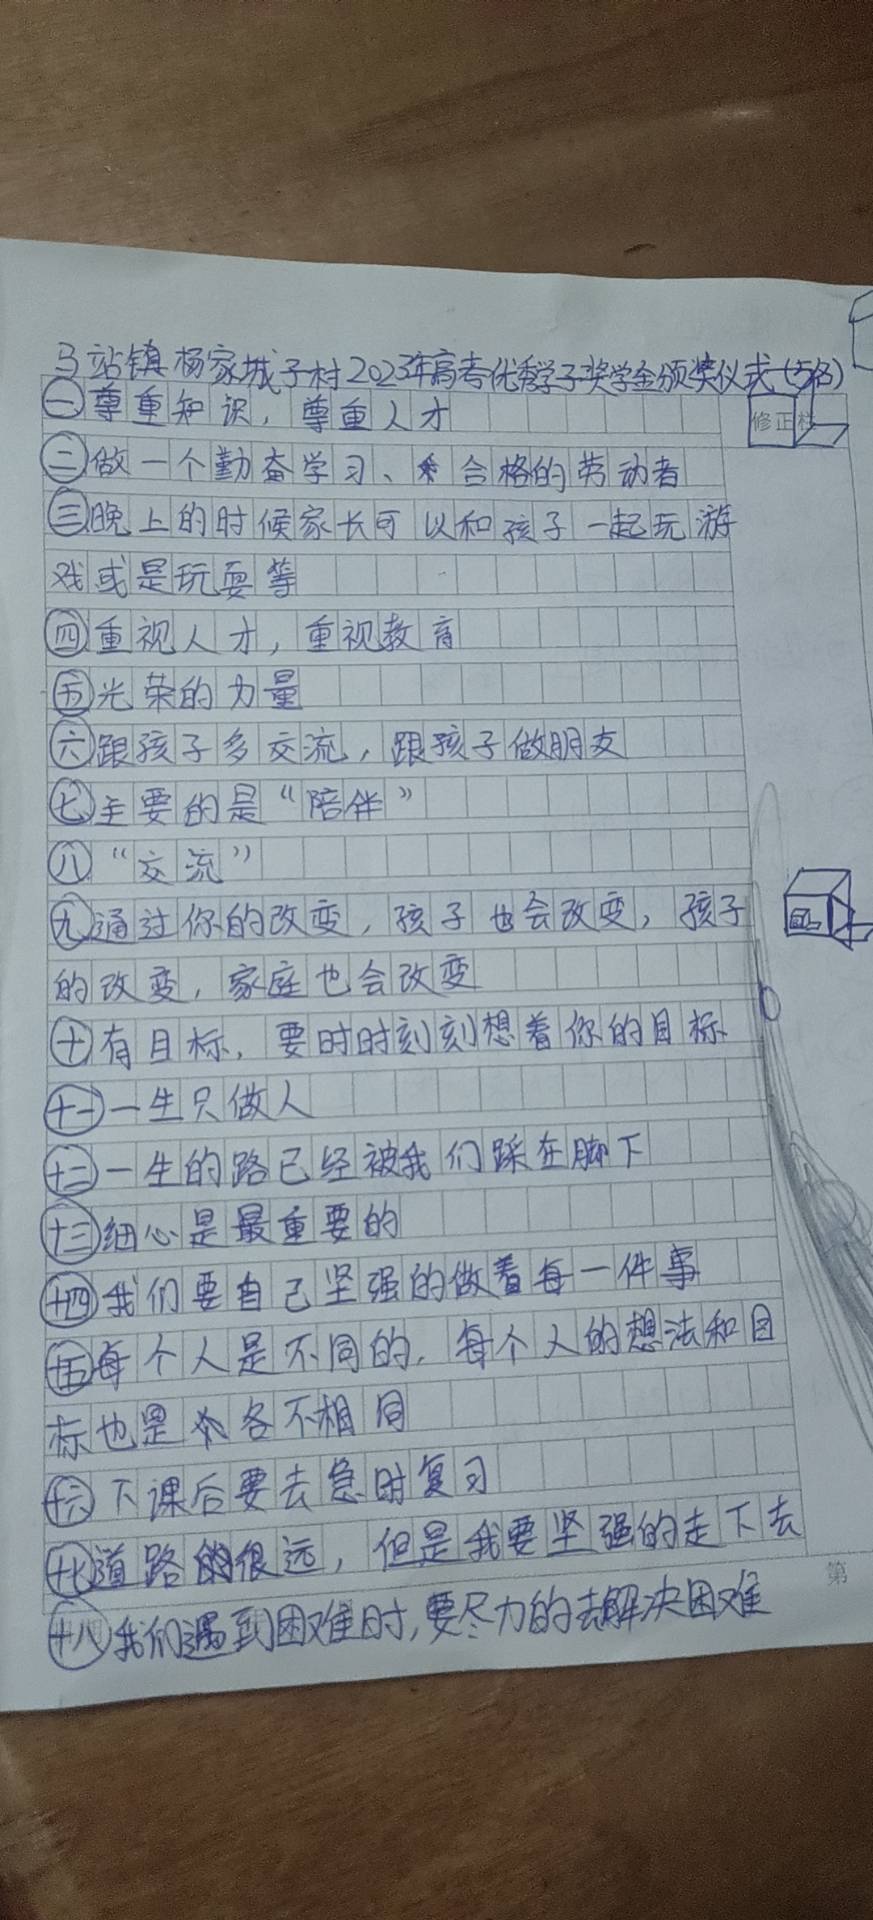 马站镇杨家城子村2023年高考优秀学子奖学金颁奖仪式(5名)
修正栏
㊀尊重知识，尊重人才
㊁做一个勤奋学习、合格的劳动者
㊂晚上的时候家长可以和孩子一起玩游
戏或是玩耍等
㊃重视人才，重视教育
㊄光荣的力量
㊅跟孩子多交流，跟孩子做朋友
㊆主要的是“陪伴”
㊇“交流”
㊈通过你的改变，孩子也会改变，孩子
的改变，家庭也会改变
㊉有目标，要时时刻刻想着你的目标
十一一生只做人
十二一生的路已经被我们踩在脚下
十三细心是最重要的
十四我们要自己坚强的做着每一件事
十五每个人是不同的，每个人的想法和目
标也是各不相同
十六下课后要去急时复习
十七道路很远，但是我要坚强的走下去
第
十八我们遇到困难时，要尽力的去解决困难